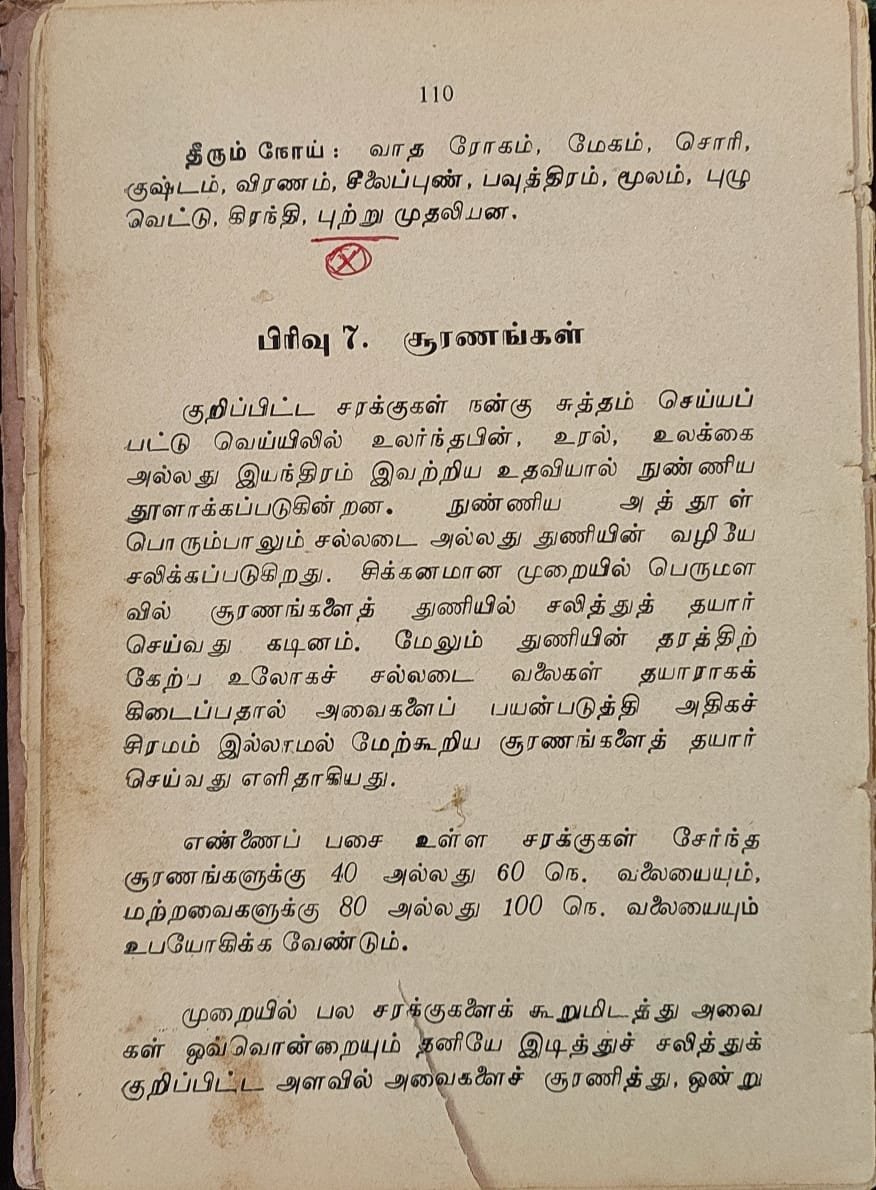 110
தீரும் நோய் : வாத ரோகம், மேகம், சொரி,
குஷ்டம், விரணம், சீலைப்புண், பவுத்திரம், மூலம், புழு
வெட்டு, கிரந்தி, புற்று முதலியன.
பிரிவு 7. சூரணங்கள்
குறிப்பிட்ட சரக்குகள் நன்கு சுத்தம் செய்யப்
பட்டு வெய்யிலில் உலர்ந்தபின், உரல், உலக்கை
அல்லது இயந்திரம் இவற்றிய உதவியால் நுண்ணிய
தூளாக்கப்படுகின்றன. நுண்ணிய அத்தூள்
பொரும்பாலும் சல்லடை அல்லது துணியின் வழியே
சலிக்கப்படுகிறது. சிக்கனமான முறையில் பெருமள
வில் சூரணங்களைத் துணியில் சலித்துத் தயார்
செய்வது கடினம். மேலும் துணியின் தரத்திற்
கேற்ப உலோகச் சல்லடை வலைகள் தயாராகக்
கிடைப்பதால் அவைகளைப் பயன்படுத்தி அதிகச்
சிரமம் இல்லாமல் மேற்கூறிய சூரணங்களைத் தயார்
செய்வது எளிதாகியது.
எண்ணைப் பசை உள்ள சரக்குகள் சேர்ந்த
சூரணங்களுக்கு 40 அல்லது 60 நெ. வலையையும்,
மற்றவைகளுக்கு 80 அல்லது 100 நெ. வலையையும்
உபயோகிக்க வேண்டும்.
முறையில் பல சரக்குகளைக் கூறுமிடத்து அவை
கள் ஒவ்வொன்றையும் தனியே இடித்துச் சலித்துக்
குறிப்பிட்ட அளவில் அவைகளைச் சூரணித்து, ஒன்று